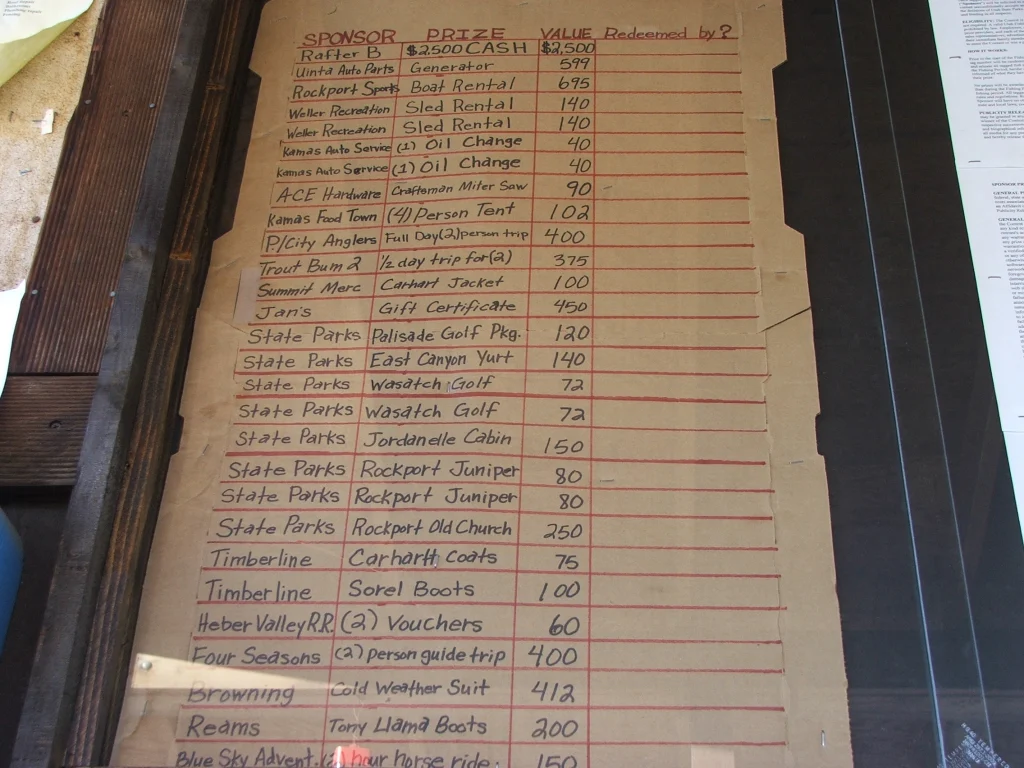 SPONSOR PRIZE VALUE Redeemed by?
Rafter B $2500 CASH $2,500
Uinta Auto Parts Generator 599
Rockport Sports Boat Rental 695
Weller Recreation Sled Rental 140
Weller Recreation Sled Rental 140
Kamas Auto Service (1) Oil Change 40
Kamas Auto Service (1) Oil Change 40
ACE Hardware Craftsman Miter Saw 90
Kamas Food Town (4) Person Tent 102
P./City Anglers Full Day (2) person trip 400
Trout Bum 2 1/2 day trip for (2) 375
Summit Merc Carhart Jacket 100
Jan's Gift Certificate 450
State Parks Palisade Golf Pkg. 120
State Parks East Canyon Yurt 140
State Parks Wasatch Golf 72
State Parks Wasatch Golf 72
State Parks Jordanelle Cabin 150
State Parks Rockport Juniper 80
State Parks Rockport Juniper 80
State Parks Rockport Old Church 250
Timberline Carhartt Coats 75
Timberline Sorel Boots 100
Heber Valley R.R. (2) Vouchers 60
Four Seasons (2) person guide trip 400
Browning Cold Weather Suit 412
Reams Tony Llama Boots 200
Blue Sky Advent. hour horse ride. 150
HOW IT WORKS: